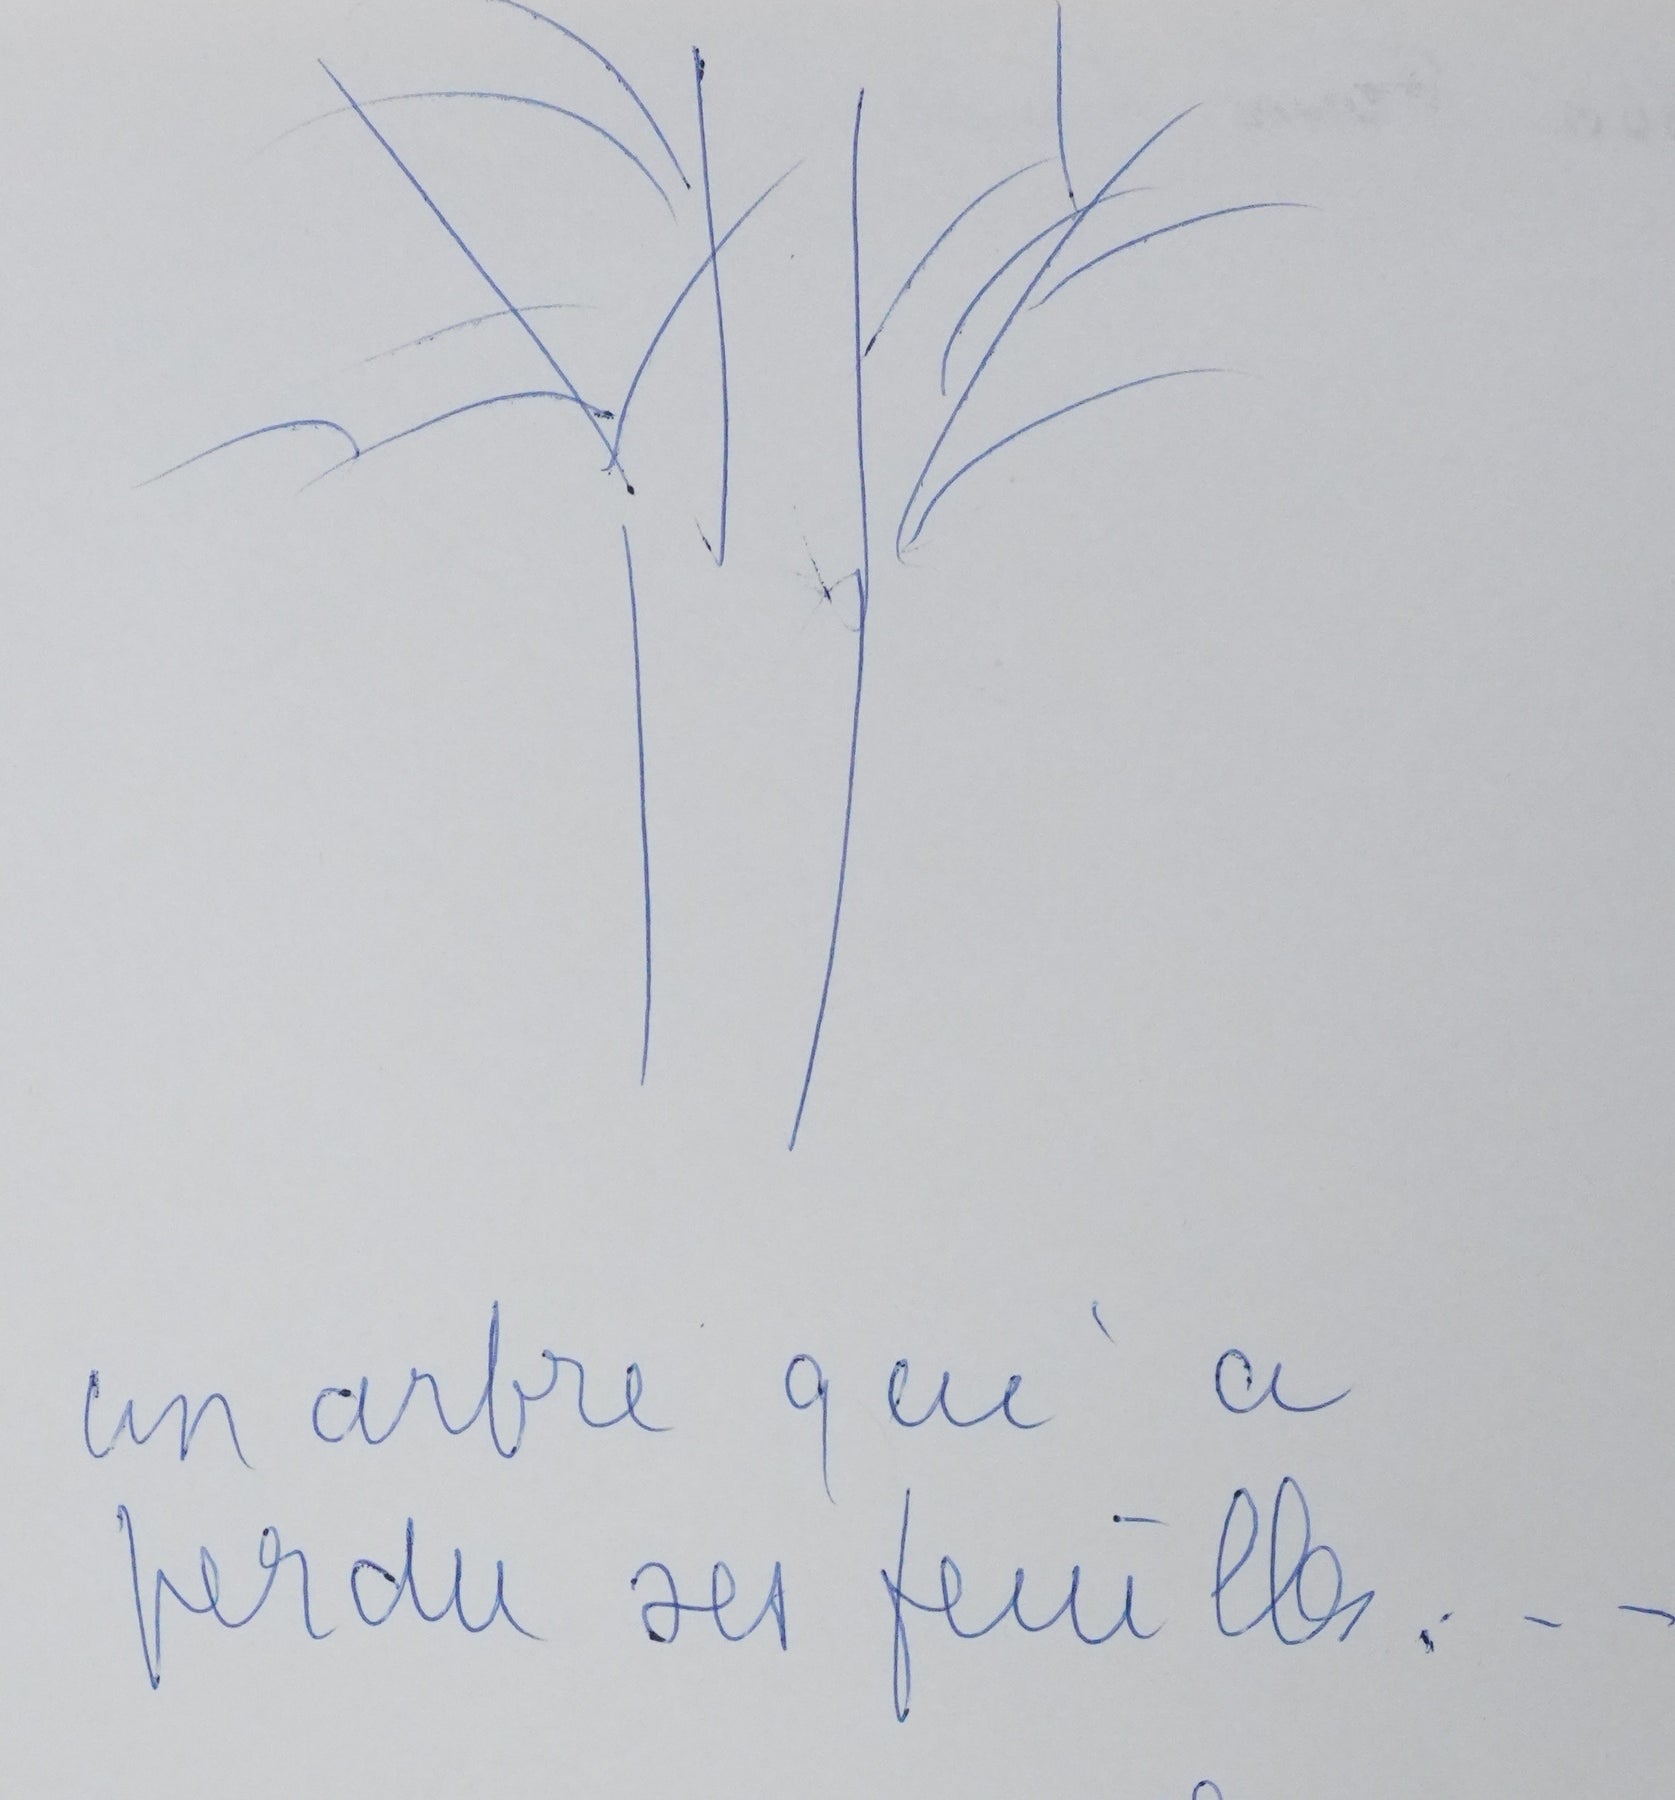 un arbre qui a
perdu ses feuilles...